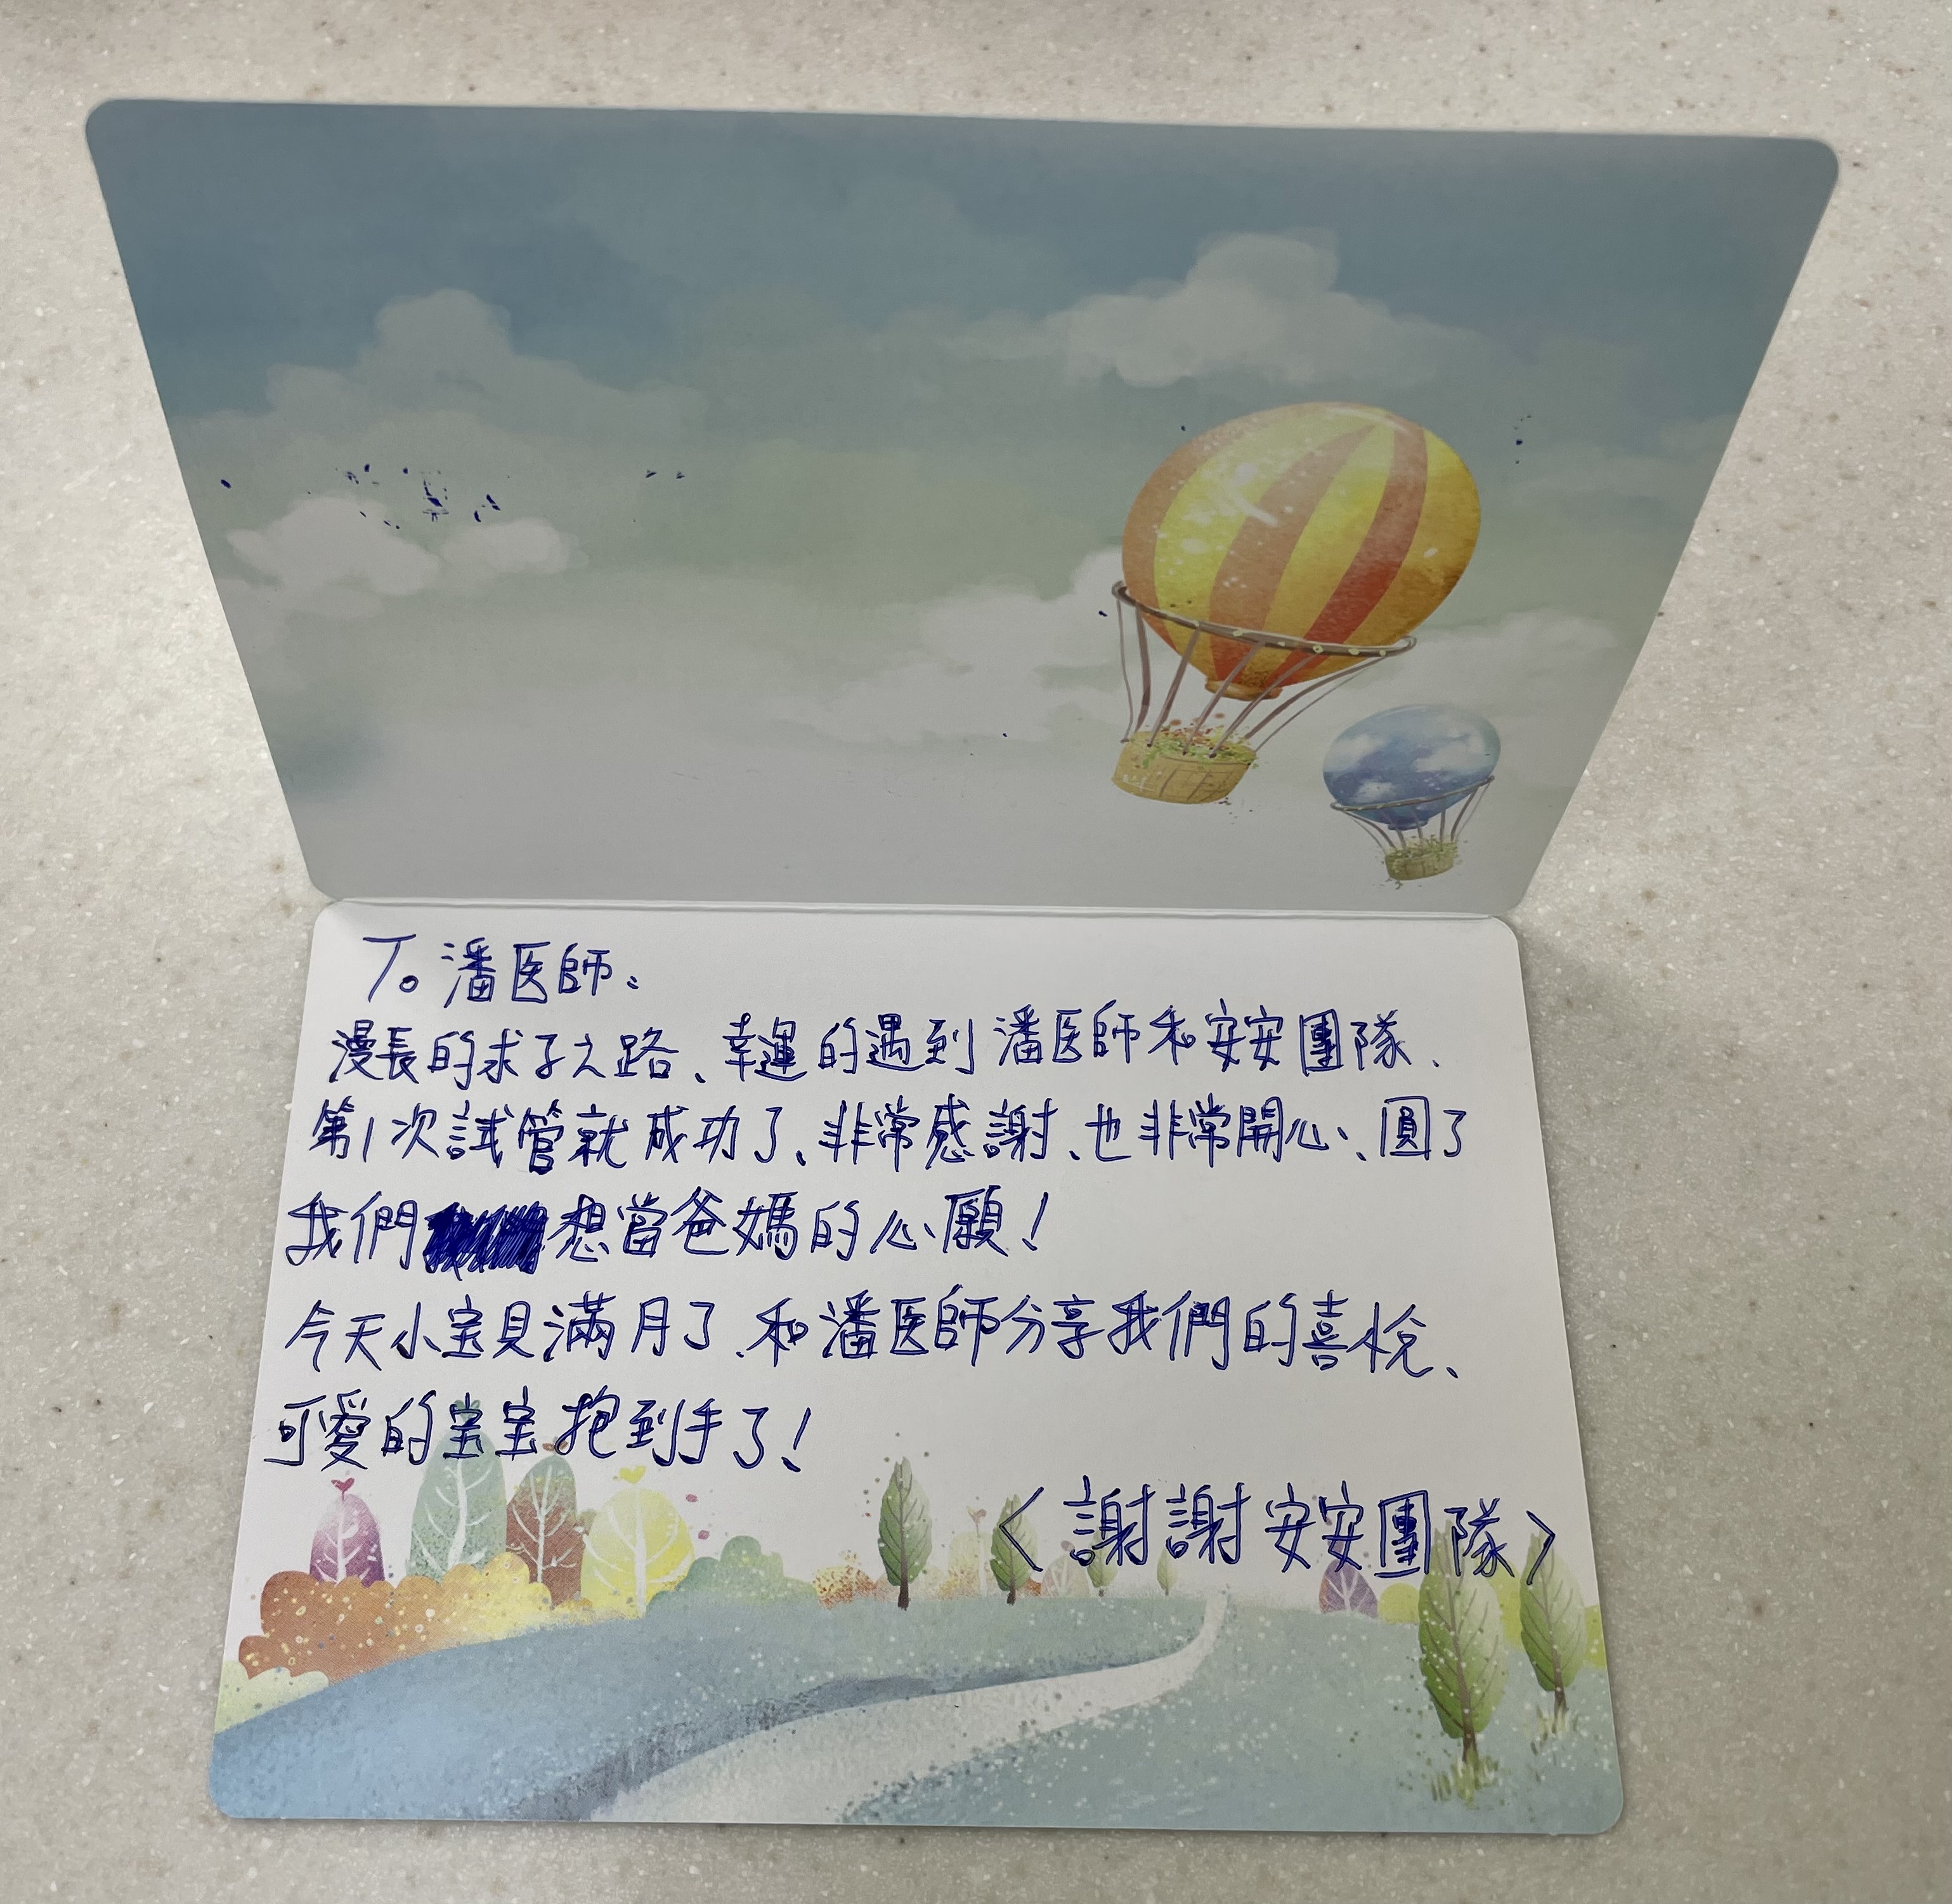 To 潘医師：
漫長的求子之路、幸運的遇到潘医師和安安團隊、
第1次試管就成功了、非常感謝、也非常開心、圓了
我們想當爸媽的心願！
今天小宝貝滿月了、和潘医師分享我們的喜悅、
可愛的宝宝抱到手了！
＜謝謝安安團隊＞